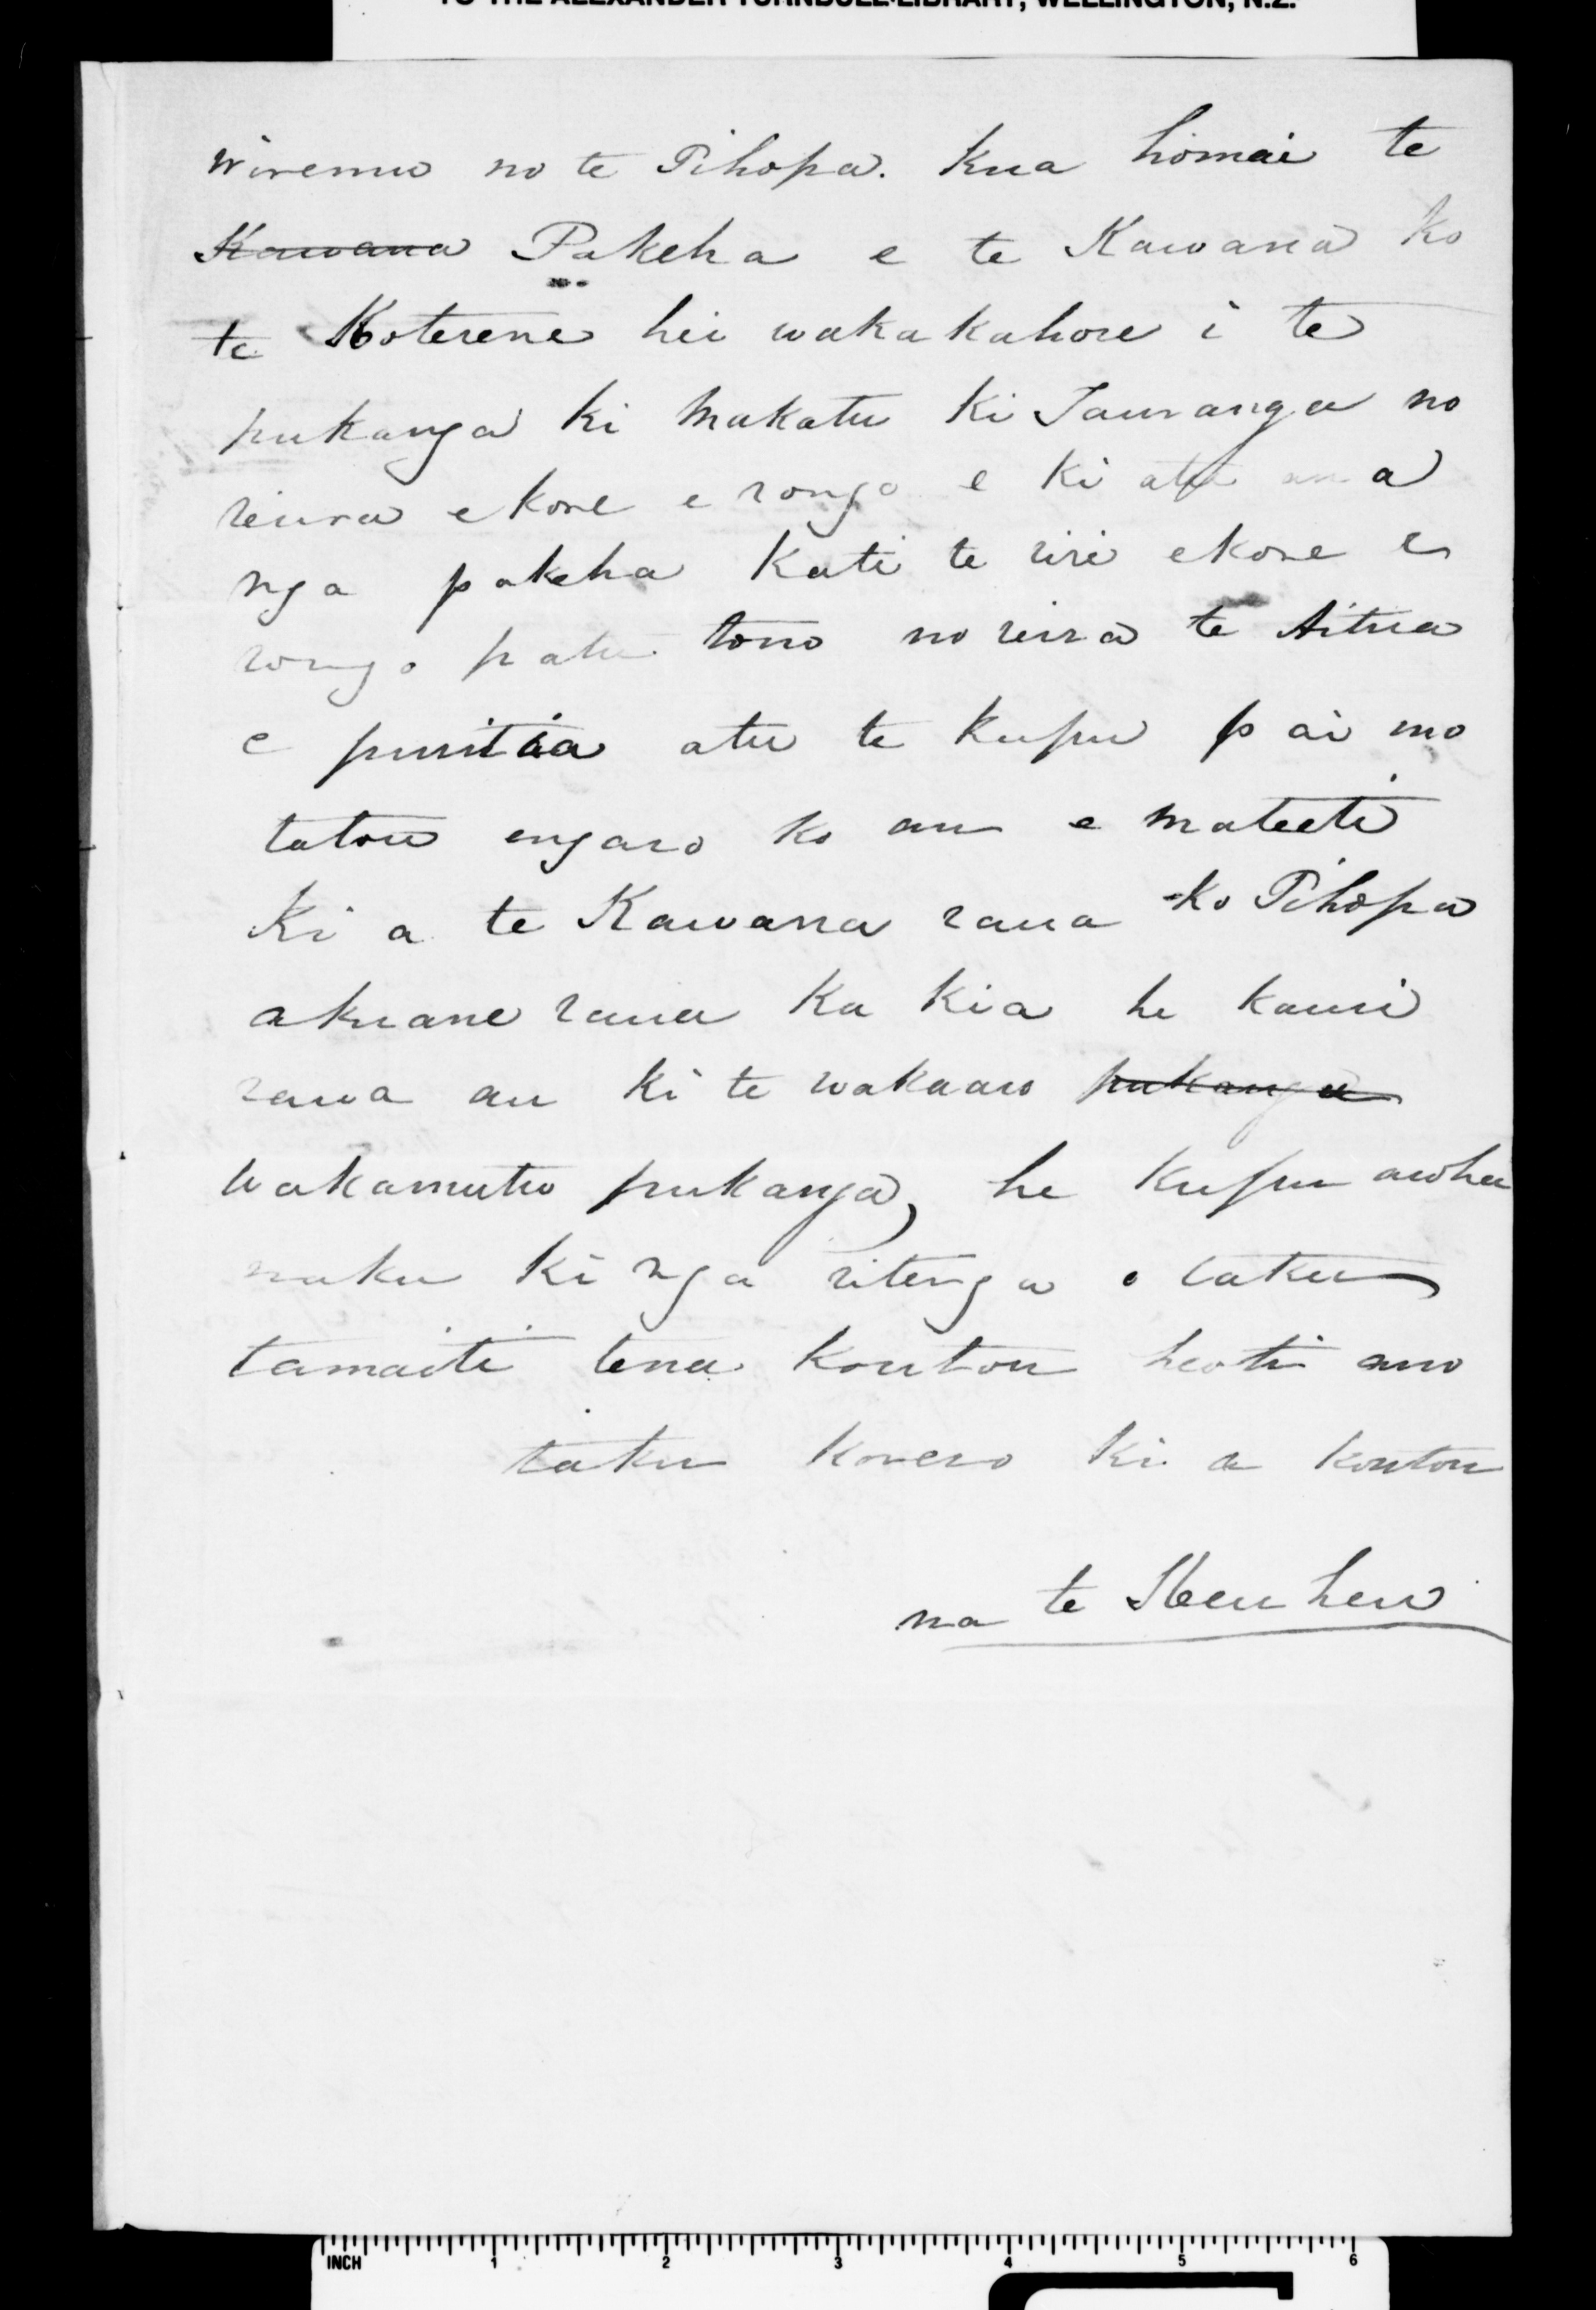 TO THE ALEXANDER TURNBULL LIBRARY, WELLINGTON, N.Z.
Wiremu no te Pihopa. Kua homai te
Kawana Pakeha e te Kawana ko
te Koterene hei wakakahore i te
pukanga ki Maketu ki Tauranga no
reira ekore e rongo e ki atu ana
nga pakeha Kati te riri ekore e
rongo patu tono no reira te Aitua
e puritia atu te kupu pai mo
tatou engaro ko au e mateeti
Ki a te Kawana raua ko Pihopa
akuane raua ka kia he kauri
rawa au ki te wakaaro pukanga
Wakamutu pukanga, he kupu aroha
naku ki nga ritenga o taku
tamaiti tena koutou heoti ano
taku korero ki a koutou
na te Heuheu
INCH 1 2 3 4 5 6